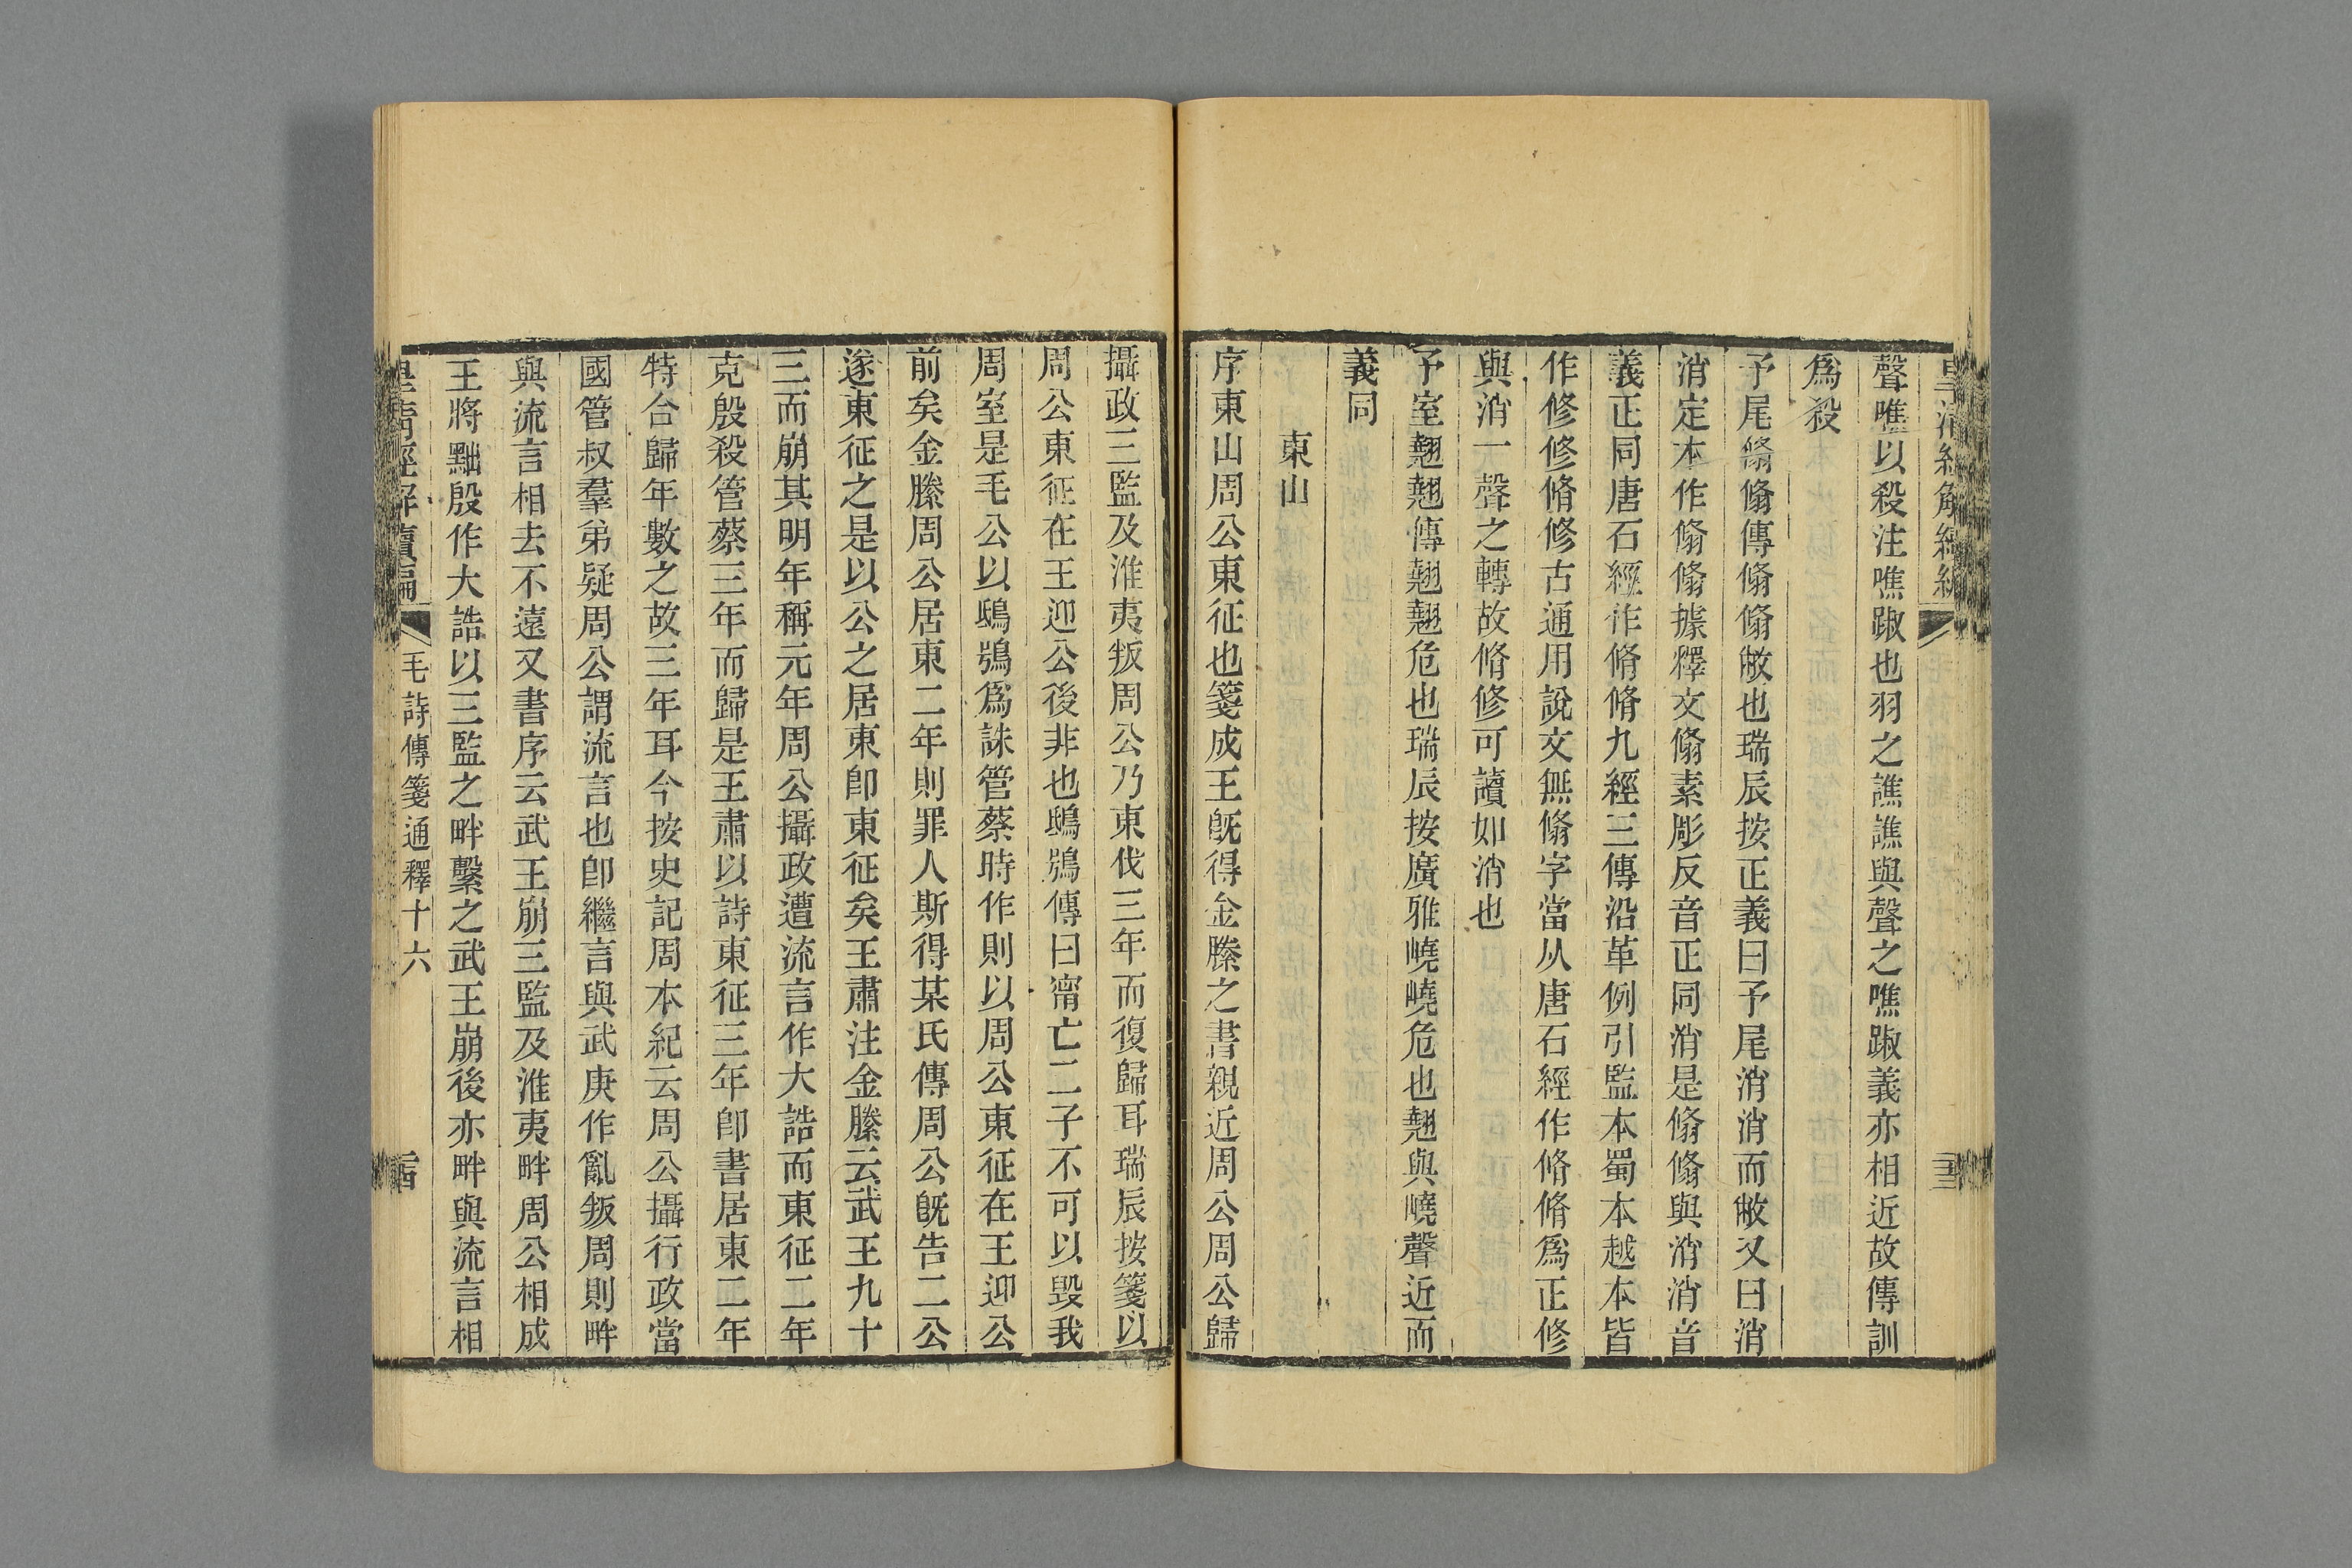 聲噍以殺注噍踧也羽之譙譙與聲之噍踧義亦相近故傳訓
爲殺
予尾翛翛傳翛翛敝也瑞辰按正義曰予尾消消而敝又曰消
消定本作翛翛據釋文翛素彫反音正同消是翛翛與消消音
義正同唐石經作脩脩九經三傳沿革例引監本蜀本越本皆
作修修脩修古通用說文無翛字當从唐石經作脩脩爲正修
與消一聲之轉故脩修可讀如消也
予室翹翹傳翹翹危也瑞辰按廣雅嶢嶢危也翹與嶢聲近而
義同
東山
序東山周公東征也箋成王旣得金縢之書親近周公周公歸
攝政三監及淮夷叛周公乃東伐三年而復歸耳瑞辰按箋以
周公東征在王迎公後非也鴟鴞傳曰甯亡二子不可以毀我
周室是毛公以鴟鴞爲誅管蔡時作則以周公東征在王迎公
前矣金縢周公居東二年則罪人斯得某氏傳周公旣告二公
遂東征之是以公之居東卽東征矣王肅注金縢云武王九十
三而崩其明年稱元年周公攝政遭流言作大誥而東征二年
克殷殺管蔡三年而歸是王肅以詩東征三年卽書居東二年
特合歸年數之故三年耳今按史記周本紀云周公攝行政當
國管叔羣弟疑周公謂流言也卽繼言與武庚作亂叛周則畔
與流言相去不遠又書序云武王崩三監及淮夷畔周公相成
王將黜殷作大誥以三監之畔繫之武王崩後亦畔與流言相
皇清經解續編
毛詩傳箋通釋十六